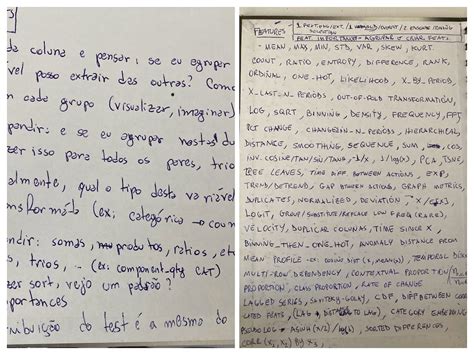 da coluna e pensar: se eu agrupar
vel posso extrair das outras? Como
cada grupo (visualizar, imaginar)
pandir: e se eu agrupar nestas du
zer isso para todos os pares, trio
almente, qual o tipo desta variável
nsformada (ex: categórica → coun
ndir: somas, produtos, ratios, etc
, trios, ... (ex: component_qty
zer sort, vejo um padrão?
portances
ribuição do test é a mesma do
FEATURES
FEAT. IMPORTANCE - AGRUPAR E CRIAR FEATS
- MEAN, MAX, MIN, STD, VAR, SKEW, KURT
COUNT, RATIO, ENTROPY, DIFFERENCE, RANK,
ORDINAL, ONE-HOT, LIKELIHOOD, X_BY_PERIOD,
X_LAST_N_PERIODS, OUT-OF-FOLD TRANSFORMATION,
LOG, SQRT, BINNING, DENSITY, FREQUENCY, FFT
PCT CHANGE, CHANGE IN-N-PERIODS, HIERARCHICAL,
DISTANCE, SMOOTHING, SEQUENCE, SUM, COS,
INV. COSINE/TAN/SIN/TANG, PCA, TSNE,
TREE LEAVES, TIME DIFF BETWEEN ACTIONS, EXP,
TREND/DETREND, GAP BETWEEN ACTIONS, GRAPH METRICS,
DUPLICATES, NORMALIZED, DEVIATION
LOGIT, GROUP/SUBSTITUTE/REPLACE LOW FREQ (RARE),
VELOCITY, DUPLICAR COLUNAS, TIME SINCE X,
BINNING_THEN_ONE_HOT, ANOMALY DISTANCE FROM
MEAN PROFILE - EX: COSINE DIST (X, MEAN(X)), TEMPORAL
MULTI-ROW DEPENDENCY, CONTEXTUAL PROPORTION
PROPORTION, CLASS PROPORTION, RATE OF CHANGE
LAGGED SERIES, SAVITSKY-GOLAY, CDF, DIFF BETWEEN
CATED FEATS, (LAG, DISTANCE TO LAG), CATEGORY EMBEDDING
PSEUDO LOG, SORTED DIFFERENCES,
CORR (X₁, X₂) BY X₃